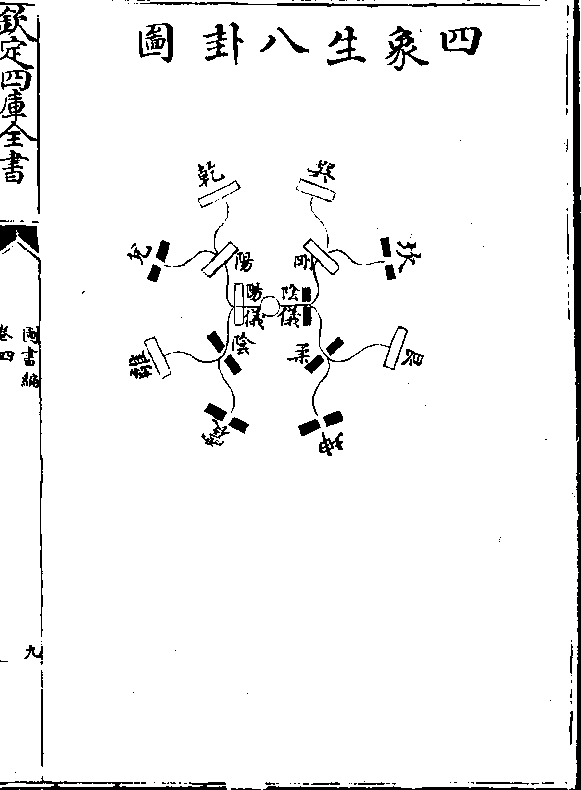 四象生八卦圖
巽
乾
坎
剛
陽
兌
陰儀
陽儀
艮
柔
陰
離
坤
震
欽定四庫全書
圖書編
卷四
九